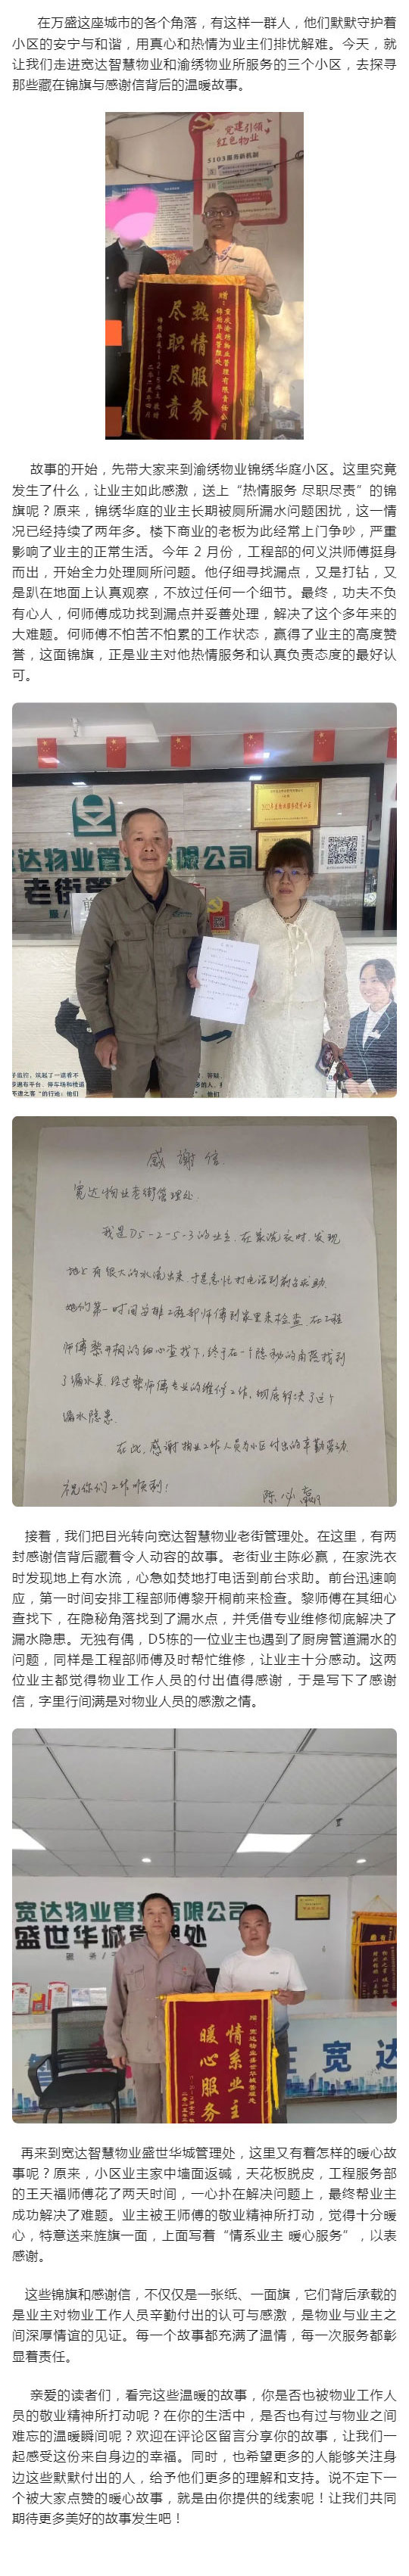 在万盛这座城市的各个角落，有这样一群人，他们默默守护着
小区的安宁与和谐，用真心和热情为业主们排忧解难。今天，就
让我们走进宽达智慧物业和渝绣物业所服务的三个小区，去探寻
那些藏在锦旗与感谢信背后的温暖故事。
党建引领
红色物业
5103服务新机制
赠：重庆渝绣物业管理有限责任公司
锦绣华庭管理处
热情服务
尽职尽责
故事的开始，先带大家来到渝绣物业锦绣华庭小区。这里究竟
发生了什么，让业主如此感激，送上“热情服务 尽职尽责”的锦
旗呢？原来，锦绣华庭的业主长期被厕所漏水问题困扰，这一情
况已经持续了两年多。楼下商业的老板为此经常上门争吵，严重
影响了业主的正常生活。今年 2 月份，工程部的何义洪师傅挺身
而出，开始全力处理厕所问题。他仔细寻找漏点，又是打钻，又
是趴在地面上认真观察，不放过任何一个细节。最终，功夫不负
有心人，何师傅成功找到漏点并妥善处理，解决了这个多年来的
大难题。何师傅不怕苦不怕累的工作状态，赢得了业主的高度赞
誉，这面锦旗，正是业主对他热情服务和认真负责态度的最好认
可。
宽达物业管 公司
老街管
感谢信
宽达物业老街管理处
我是D5-2-5-3的业主，在家洗衣时，发现
地上有很大的水流出来，于是急忙打电话到前台求助
她们第一时间安排工程部师傅到家里来检查，在工程
师傅黎开桐的细心查找下，终于在一个隐秘的角落找到
了漏水点，经过黎师傅专业的维修工作，彻底解决了这个
漏水隐患.
在此，感谢物业工作人员为小区付出的辛勤劳动.
祝你们工作顺利！
陈必赢
接着，我们把目光转向宽达智慧物业老街管理处。在这里，有两
封感谢信背后藏着令人动容的故事。老街业主陈必赢，在家洗衣
时发现地上有水流，心急如焚地打电话到前台求助。前台迅速响
应，第一时间安排工程部师傅黎开桐前来检查。黎师傅在其细心
查找下，在隐秘角落找到了漏水点，并凭借专业维修彻底解决了
漏水隐患。无独有偶，D5栋的一位业主也遇到了厨房管道漏水的
问题，同样是工程部师傅及时帮忙维修，让业主十分感动。这两
位业主都觉得物业工作人员的付出值得感谢，于是写下了感谢
信，字里行间满是对物业人员的感激之情。
宽达物业管 有限公司
盛世华城管理处
赠：宽达物业盛世华城管理处
情系业主
暖心服务
在宽达
再来到宽达智慧物业盛世华城管理处，这里又有着怎样的暖心故
事呢？原来，小区业主家中墙面返碱，天花板脱皮，工程服务部
的王天福师傅花了两天时间，一心扑在解决问题上，最终帮业主
成功解决了难题。业主被王师傅的敬业精神所打动，觉得十分暖
心，特意送来旌旗一面，上面写着“情系业主 暖心服务”，以表
感谢。
这些锦旗和感谢信，不仅仅是一张纸、一面旗，它们背后承载的
是业主对物业工作人员辛勤付出的认可与感激，是物业与业主之
间深厚情谊的见证。每一个故事都充满了温情，每一次服务都彰
显着责任。
亲爱的读者们，看完这些温暖的故事，你是否也被物业工作人
员的敬业精神所打动呢？在你的生活中，是否也有过与物业之间
难忘的温暖瞬间呢？欢迎在评论区留言分享你的故事，让我们一
起感受这份来自身边的幸福。同时，也希望更多的人能够关注身
边这些默默付出的人，给予他们更多的理解和支持。说不定下一
个被大家点赞的暖心故事，就是由你提供的线索呢！让我们共同
期待更多美好的故事发生吧！